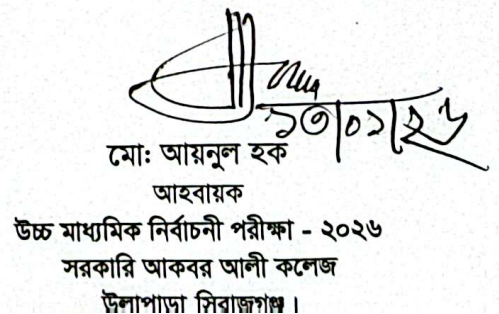 ১৩|০১|২৬
মো: আয়নুল হক
আহবায়ক
উচ্চ মাধ্যমিক নির্বাচনী পরীক্ষা - ২০২৬
সরকারি আকবর আলী কলেজ
উল্লাপাড়া সিরাজগঞ্জ।